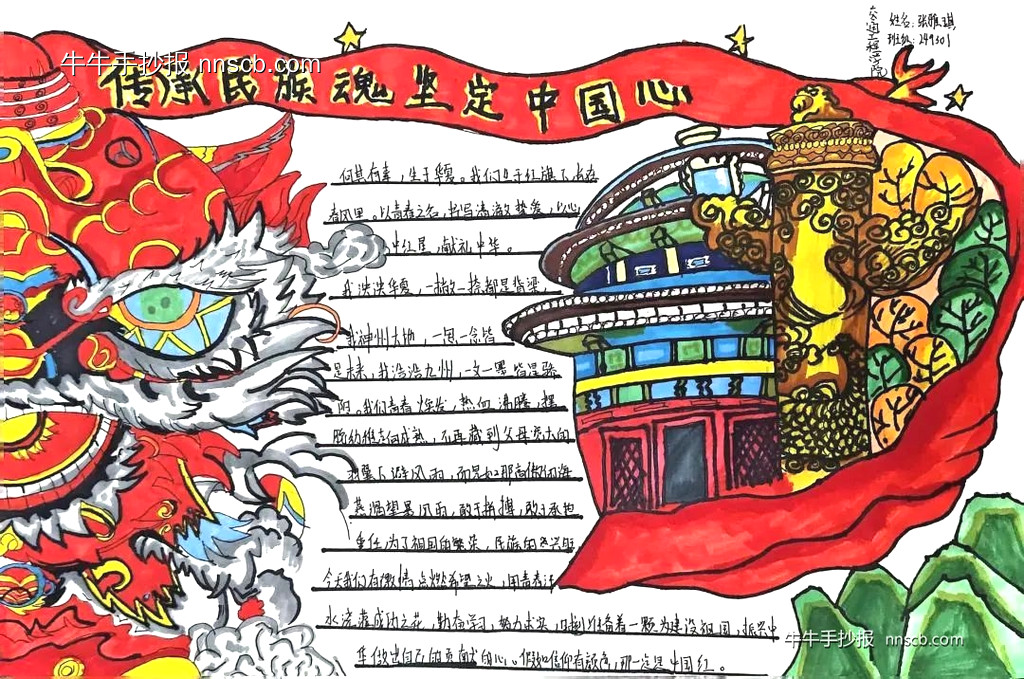 牛牛手抄报 nnscb.com
传承民族魂 坚定中国心
交通工程学院
姓名:张雅琪
班级:249301
何其有幸,生于华夏。我们生于红旗下,长在
春风里。以青春之名,书写清澈挚爱,以心
中红星,献礼中华。
我泱泱华夏,一撇一捺都是脊梁
我神州大地,一思一念皆
是未来,我浩浩九州,一文一墨皆是骄
阳。我们青春焕发,热血沸腾,摆
脱幼稚走向成熟,不再藏到父母宽大的
羽翼下避风雨,而是如那高傲的海
燕渴望暴风雨,敢于拼搏,敢于承担
重任为了祖国的繁荣,民族的复兴
今天我们有激情点燃希望之火,用青春汗
水浇灌成功之花,勤奋学习,努力
着一颗为建设祖国,振兴中
华做出自己的贡献的心。假如信仰有颜色,那一定是中国红。
牛牛手抄报 nnscb.com